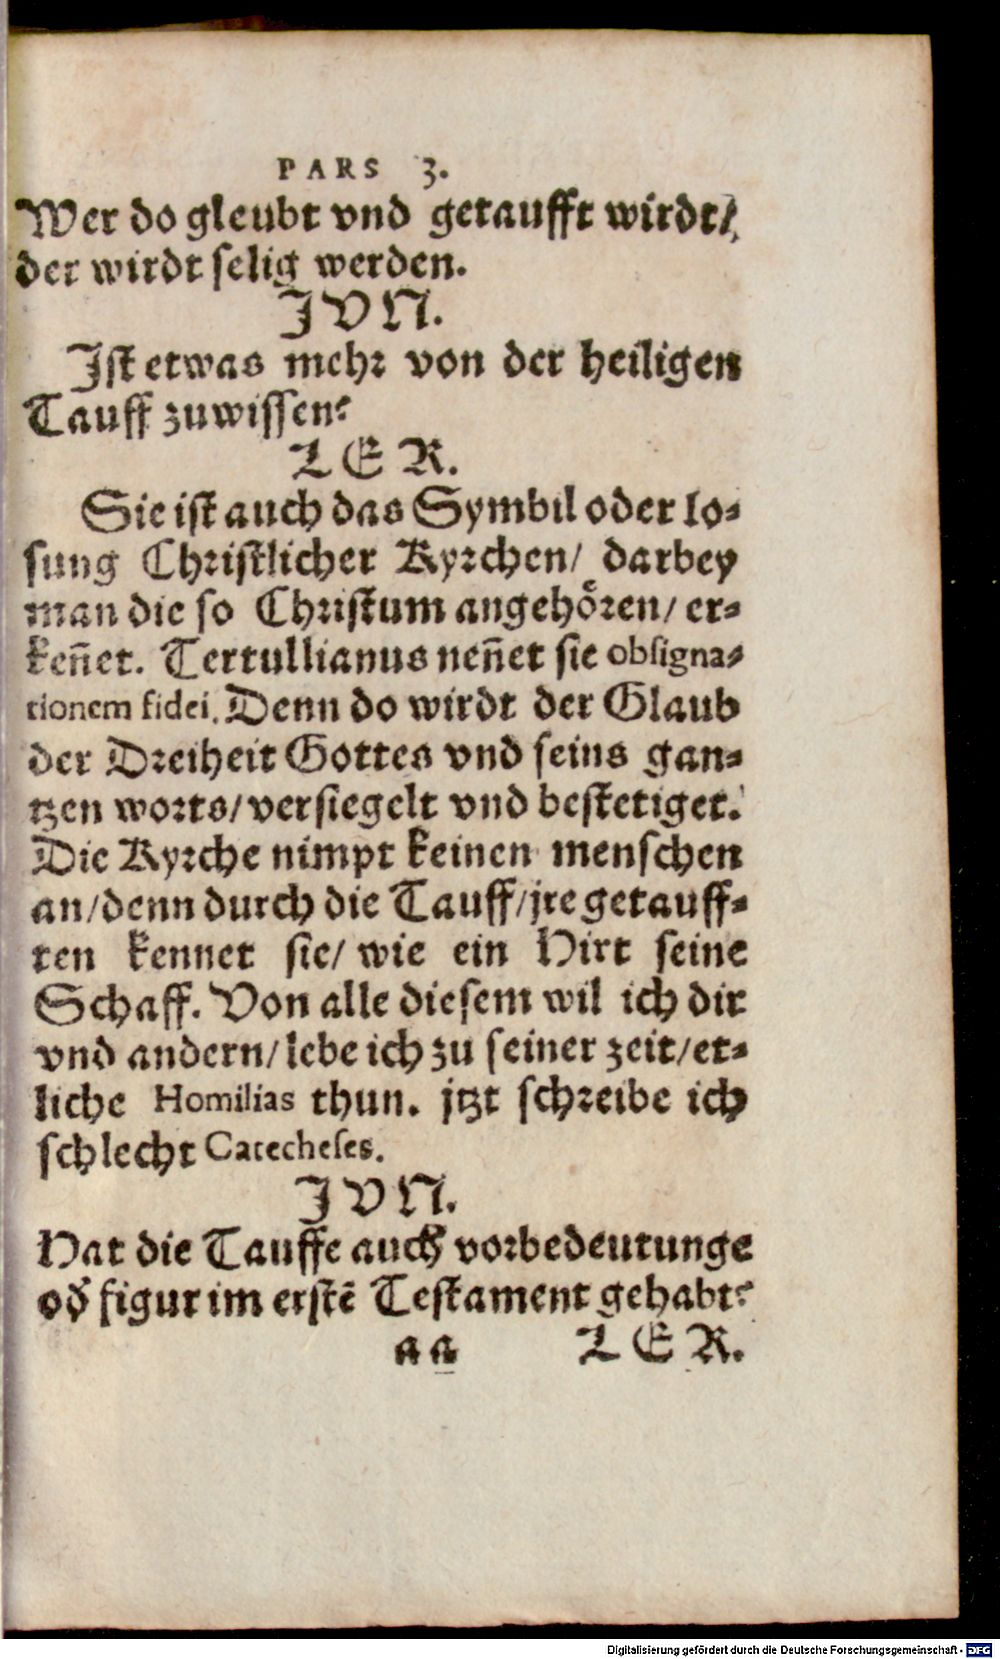 PARS 3.
Wer do gleubt vnd getaufft wirdt/
der wirdt selig werden.
JVN.
Jst etwas mehr von der heiligen
Tauff zuwissen?
LER.
Sie ist auch das Symbil oder lo-
sung Christlicher Kyrchen/ darbey
man die so Christum angehören/ er-
keñet. Tertullianus neñet sie obsigna-
tionem fidei. Denn do wirdt der Glaub
der Dreiheit Gottes vnd seins gan-
tzen worts/ versiegelt vnd bestetiget.
Die Kyrche nimpt keinen menschen
an/ denn durch die Tauff/ jre getauff-
ten kennet sie/ wie ein Hirt seine
Schaff. Von alle diesem wil ich dir
vnd andern/ lebe ich zu seiner zeit/ et-
liche Homilias thun. jtzt schreibe ich
schlecht Catecheses.
JVN.
Hat die Tauffe auch vorbedeutunge
od̕ figur im erstē Testament gehabt?
aa LER.
Digitalisierung gefördert durch die Deutsche Forschungsgemeinschaft - DFG